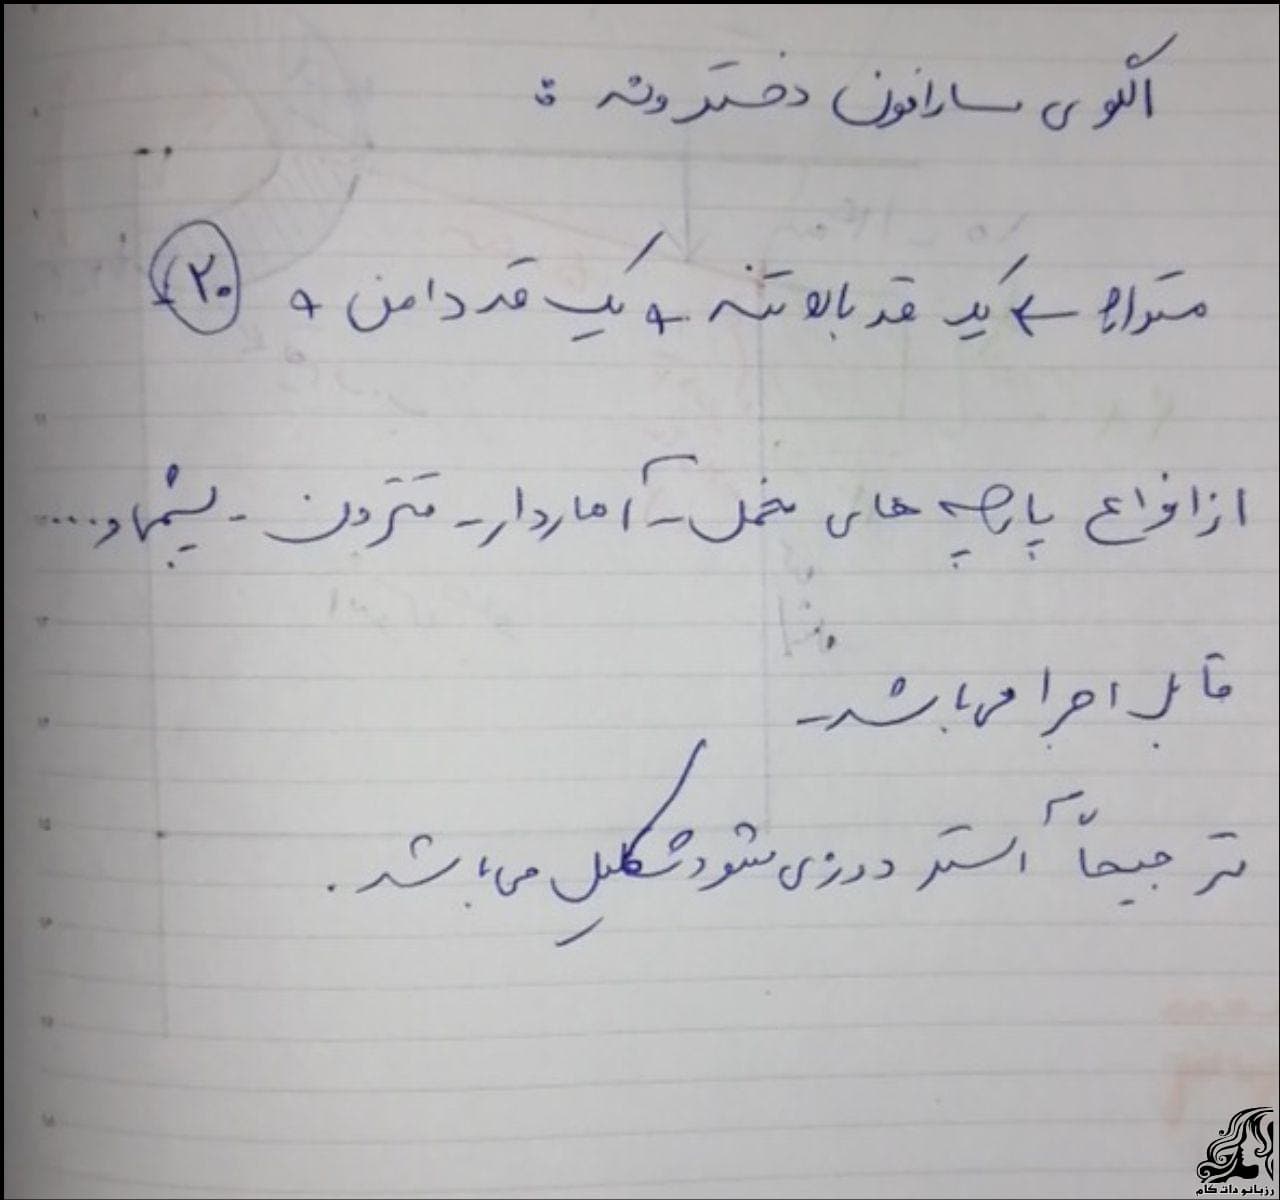 الگوی سارافون دخترونه :
متراژ ← یک قد بالا تنه + یک قد دامن + ۲۰
از انواع پارچه های مخمل - آهاردار - فترون - پشمی و ....
قابل اجرا می باشد -
ترجیحاً آستر دوزی شود شکیل می باشد .
رزبانو دات کام